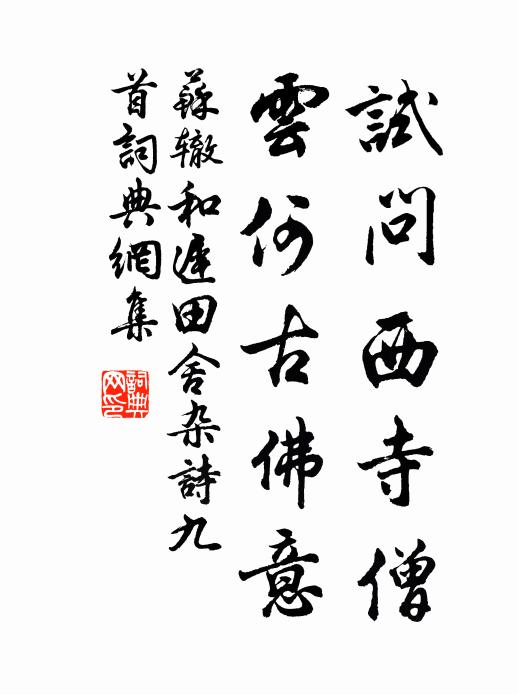 試問西寺僧
雲何古佛意
蘇轍和遲田舍杂詩九
首詞典網集
詞典
网印